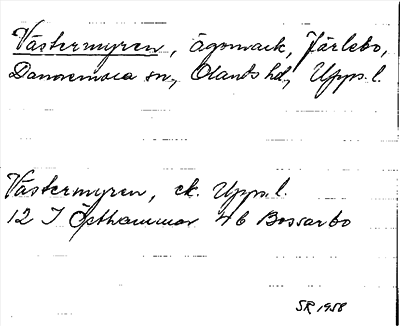 Västermyren, ägomark, Järlebo,
Dannemora sn, Olands hd, Upps. l.
Västermyren, ek. Upps. l.
12 I Östhammar 4b Bossarbo
SR 1958